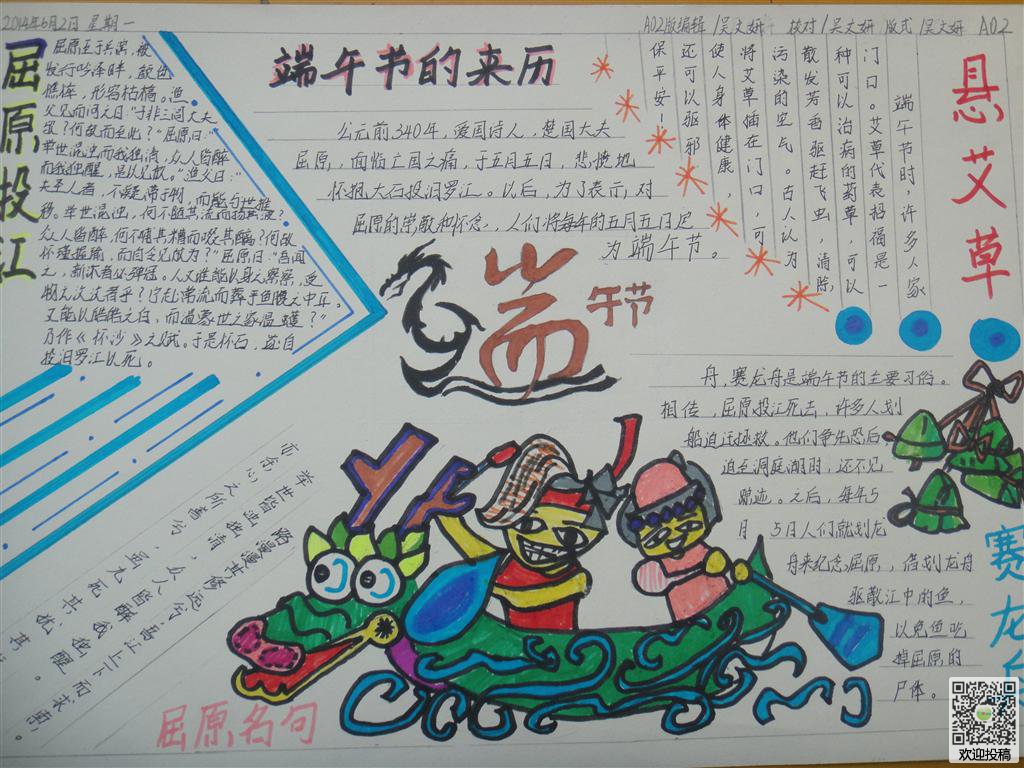 2014年6月2日 星期一
A02版编辑/吴文妍 校对/吴文妍 版式/吴文妍 A02
屈原投江
屈原至于兵滨，被
发行吟泽畔，颜色
憔悴，形容枯槁。渔
父见而问之曰："子非三闾大夫
欤？何故而至此？"屈原曰：
举世混浊而我独清，众人皆醉
而我独醒，是以见放。"渔父曰："
夫圣人者，不凝滞于物，而能与世推
移。举世混浊，何不随其流而扬其波？
众人皆醉，何不啜其醨？何故
怀瑾握瑜，而自令见放为？"屈原曰："吾闻
之，新沐者必弹冠。人又谁能以身之察察，受
物之汶汶者乎？宁赴常流而葬乎鱼腹之中耳。
又能以皓皓之白，而温蠖？"
乃作《怀沙》之赋。于是怀石，遂自
投汨罗江以死。
端午节的来历
公元前340年，爱国诗人，楚国大夫
屈原，面临亡国之痛，于五月五日，悲愤地
怀抱大石投汨罗江。以后，为了表示，对
屈原的崇敬和怀念，，人们将每年的五月五日定
为端午节。
端
午节
悬艾草
端午节时，许多人家
门口。艾草代表招福是一
种可以治病的药草，可以
散发芳香驱赶飞虫，清除
污染的空气。古人认为
将艾草插在门口，可
使人身体健康，
还可以驱邪
保平安！
舟，赛龙舟是端午节的主要习俗。
相传，屈原投江死去，许多人划
船追迁拯救。他们争先恐后
追至洞庭湖时，还不见
踪迹。之后，每年5
月5日人们就划龙
舟来纪念屈原，借划龙舟
驱散江中的鱼，
以免鱼吃
掉屈原的
尸体。
赛龙舟
路漫漫其修远兮，吾将上下而求索。
举世皆浊我独清，众人皆醉我独醒。
亦余心之所善兮，虽九死其犹
屈原名句
欢迎投稿